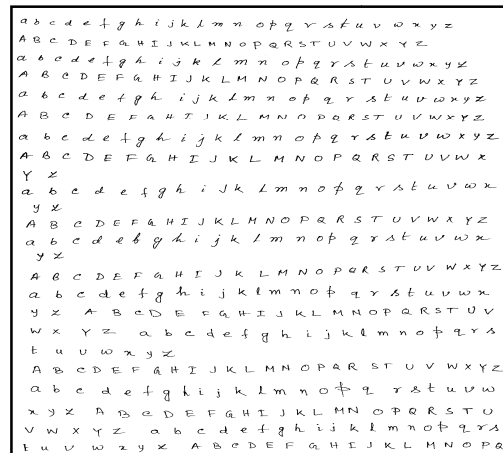 a b c d e f g h i j k l m n o p q r s t u v w x y z
A B C D E F G H I J K L M N O P Q R S T U V W X Y Z
a b c d e f g h i j k l m n o p q r s t u v w x y z
A B C D E F G H I J K L M N O P Q R S T U V W X Y Z
a b c d e f g h i j k l m n o p q r s t u v w x y z
A B C D E F G H I J K L M N O P Q R S T U V W X Y Z
a b c d e f g h i j k l m n o p q r s t u v w x y z
A B C D E F G H I J K L M N O P Q R S T U V W X
Y Z
a b c d e f g h i j k l m n o p q r s t u v w x
y z
A B C D E F G H I J K L M N O P Q R S T U V W X Y Z
a b c d e f g h i j k l m n o p q r s t u v w x
y z
A B C D E F G H I J K L M N O P Q R S T U V W X Y Z
a b c d e f g h i j k l m n o p q r s t u v w x
y z A B C D E F G H I J K L M N O P Q R S T U V
W X Y Z a b c d e f g h i j k l m n o p q r s
t u v w x y z
A B C D E F G H I J K L M N O P Q R S T U V W X Y Z
a b c d e f g h i j k l m n o p q r s t u v w
x y z A B C D E F G H I J K L M N O P Q R S T U
V W X Y Z a b c d e f g h i j k l m n o p q r s
t u v w x y z A B C D E F G H I J K L M N O P Q